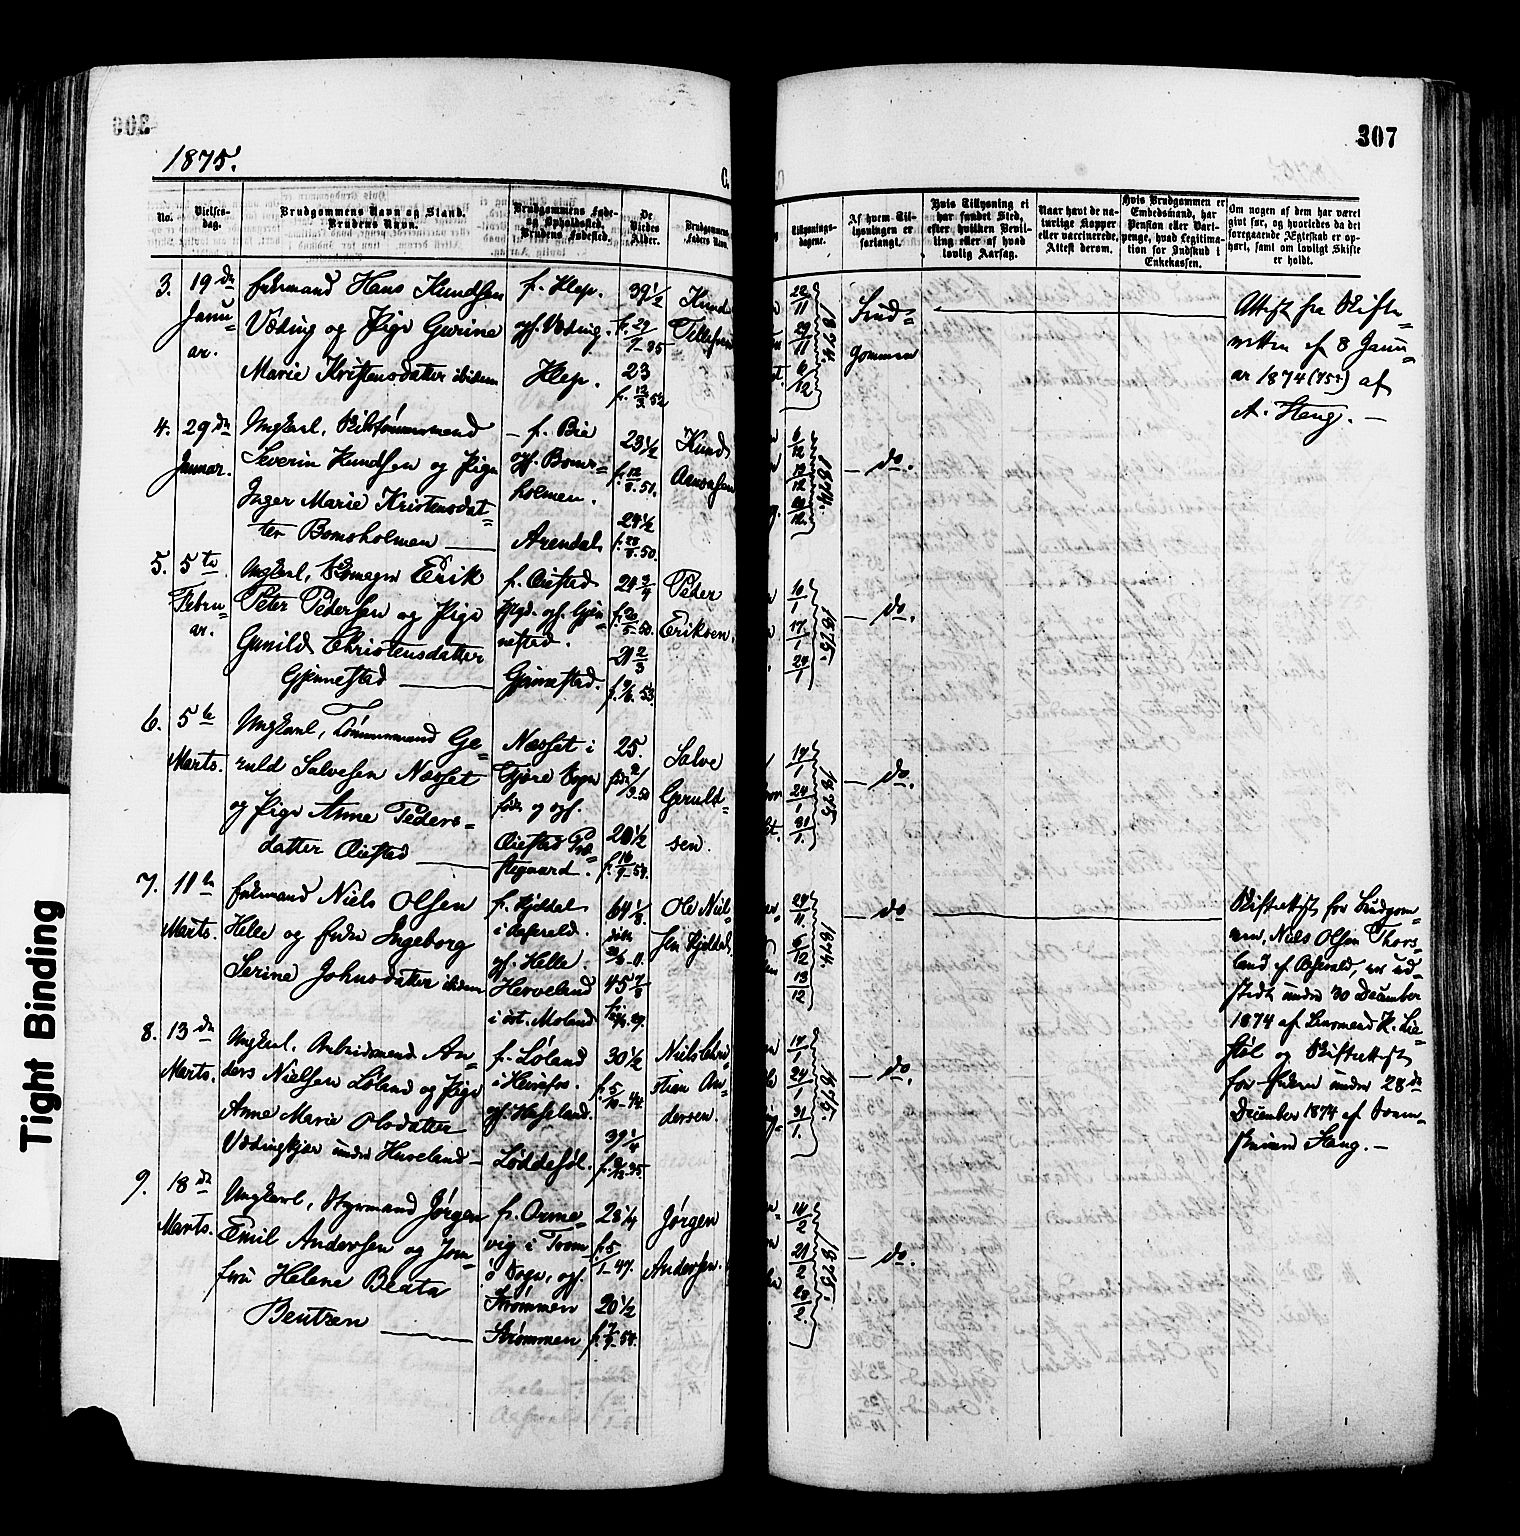 307
1875.
No.
Vielses-
dag.
Brudgommens Navn og Stand.
Brudens Navn.
Brudgommens Føde-
og Opholdssted.
Brudens Fødested.
De
Viedes
Alder.
Brudgommens
Faders Navn
Tillysnings-
dagene.
Af hvem Til-
lysningen er
forlangt.
Hvis Tillysning ei
har fundet Sted,
efter hvilken Bevil-
ling eller af hvad
lovlig Aarsag.
Naar havt de na-
turlige Kopper
eller vaccinerede,
Attest derom.
Hvis Brudgommen er
Embedsmand, har
Pension eller Vart-
penge, hvad Legitima-
tion for Indskud i
Enkekassen.
Om nogen af dem har været
givt før, og hvorledes da det
foregaaende Ægteskab er op-
hørt, samt om lovligt Skifte
er holdt.
3.
19 de
Janu-
ar.
Enkemand Hans Knudsen
Vøding og Pige Gurine
Marie Kristensdatter ibidem
f. Klep.
opf. Vøding.
Klep.
39 1/2
23
Knud
Tellefsen
22/11
29/11
6/12
1874.
Brud-
gommen
Attest fra Skifte-
retten af 8 Janu-
ar 1874 (75?) af
A. Stang. —
4.
29 de
Januar.
Ungkarl,
Severin Knudsen og Pige
Inger Marie Kristensdat-
ter Bomsholmen
f. Bie
opf. Boms-
holmen.
Arendal
23 1/2
24 1/2
Knud
6/12
13/12
20/12
1874.
— do.
5.
5te
Febru-
ar.
Ungkarl, Erik
Peter Pedersen og Pige
Gunild Christensdatter
Gjennestad
f. Øiestad
Pgd. opf. Gjen-
nestad.
Gjennestad.
24 3/4
21 2/3
Peder
Eriksen.
10/1
17/1
24/1
1875.
— do.
6.
5te
Marts.
Ungkarl, Tømmermand Ge-
ruld Salvesen Næsset
og Pige Anne Peders-
datter Øiestad
Næsset i
Fjære Sogn
født og opf.
Øiestad Præ-
stegaard.
25.
20 1/2
Salve
Geruld-
sen.
17/1
24/1
31/1
1875
— do.
7.
11te
Marts.
Enkemand Niels Olsen
Helle og Enke Ingeborg
Serine Johnsdatter ibidem
f. Fjeldal
i Asferald.
opf. Helle.
Herveland
i øst. Moland
64 1/8
45 7/8
Ole Niel-
sen Fjeldal
29/11
6/12
13/12
1874.
— do
Skifteattest for Brudgom-
men, Niels Olsen Thors-
land af Asferald, er ud-
stedt under 30 December
1874 af Lensmand K. Lie-
støl og Skifteattest
for Enken under 28de
December 1874 af Soren-
skriver Stang. —
8.
13de
Marts.
Ungkarl, Arbeidsmand An-
ders Nielsen Løland og Pige
Anne Marie Olsdatter
Vødingkjær under Huseland
f. Løland
i Heirefos.
opf. Huseland.
Løddesøl.
30 1/2
39 1/4
Niels Chri-
stien An-
dersen.
17/1
24/1
31/1
1875.
— do.
9.
18de
Marts.
Ungkarl, Styrmand Jørgen
Emil Andersen og Jom-
fru Helene Beata
Bentzen
f. Orme-
vig i Trom-
ø Sogn, opf.
Strømmen
Strømmen
28 1/4
20 1/2
Jørgen
Andersen.
14/2
21/2
28/2
1875.
— do.
Tight Binding